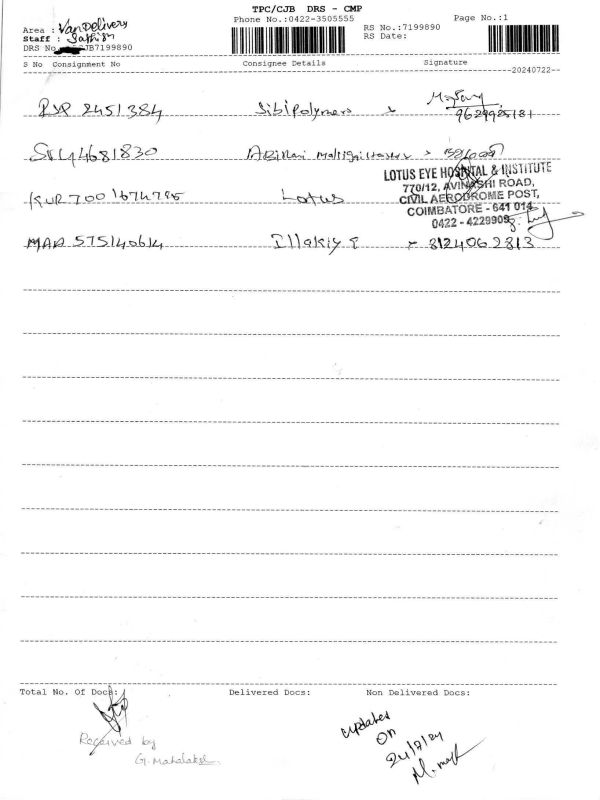 TPC/CJB DRS - CMP
Phone No.:0422-3505555
Page No.:1
Area : Van Delivery
Staff : Sathish
DRS No CJB7199890
RS No.:7199890
RS Date:
S No Consignment No Consignee Details Signature
20240722
2451384 Sibipolymers
9629925131
4681830
LOTUS EYE HOSPITAL & INSTITUTE
770/12, AVINASHI ROAD,
CIVIL AERODROME POST,
COIMBATORE - 641 014
0422 - 4229909
KUR 7001674795 Lotus
MAA 575140614 Illakiya 8124062813
Total No. Of Docs: Delivered Docs: Non Delivered Docs:
Received by
G. Mahalakshmi
Updates
on
24/7/24